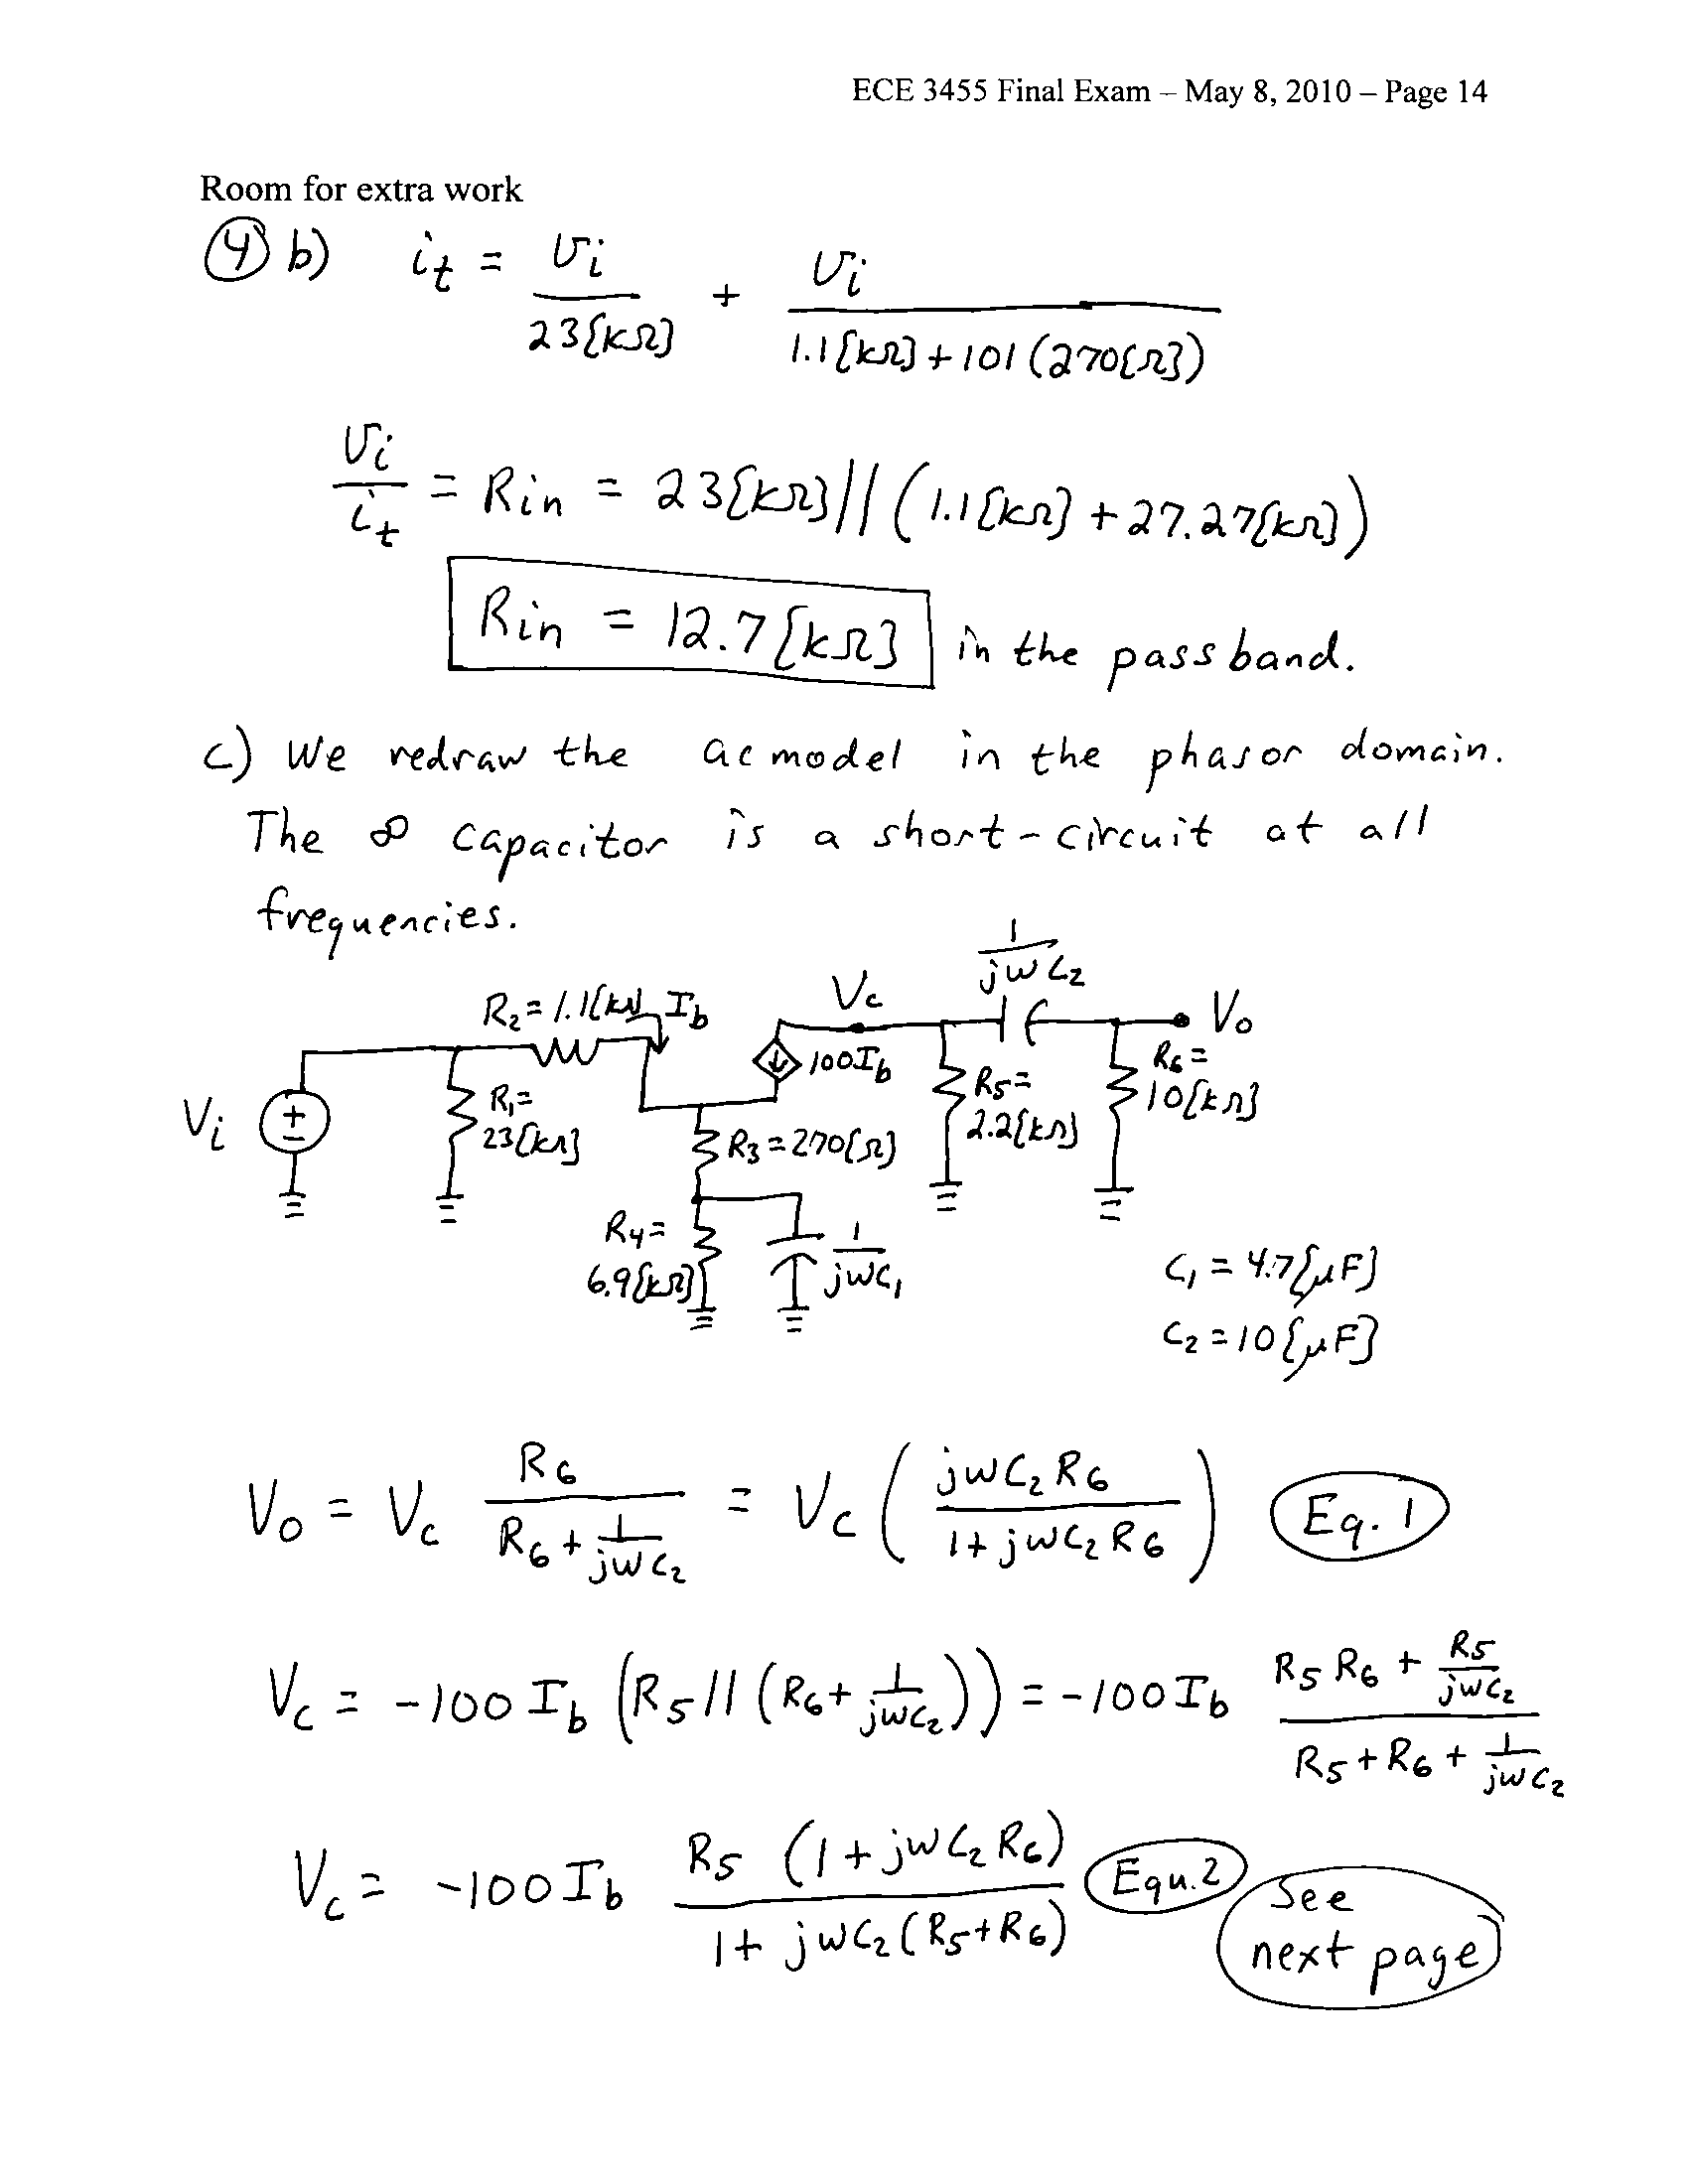 ECE 3455 Final Exam – May 8, 2010 – Page 14
Room for extra work
④ b) i_t = v_i / 23[kΩ] + v_i / (1.1[kΩ] + 101(270[Ω]))
v_i / i_t = Rin = 23[kΩ] || (1.1[kΩ] + 27.27[kΩ])
Rin = 12.7[kΩ] in the passband.
c) We redraw the ac model in the phasor domain.
The ∞ capacitor is a short-circuit at all
frequencies.
1/(jωC₂)
R₂ = 1.1[kΩ] I_b V_c V_o
100I_b
V_i + −
R₁ = 23[kΩ]
R₅ = 2.2[kΩ]
R₆ = 10[kΩ]
R₃ = 270[Ω]
R₄ = 6.9[kΩ]
1/(jωC₁)
C₁ = 4.7[μF]
C₂ = 10[μF]
V_o = V_c R₆ / (R₆ + 1/(jωC₂)) = V_c (jωC₂R₆ / (1 + jωC₂R₆)) Eq. 1
V_c = -100 I_b (R₅ || (R₆ + 1/(jωC₂))) = -100 I_b (R₅R₆ + R₅/(jωC₂)) / (R₅ + R₆ + 1/(jωC₂))
V_c = -100 I_b R₅ (1 + jωC₂R₆) / (1 + jωC₂(R₅ + R₆)) Equ. 2
See
next page